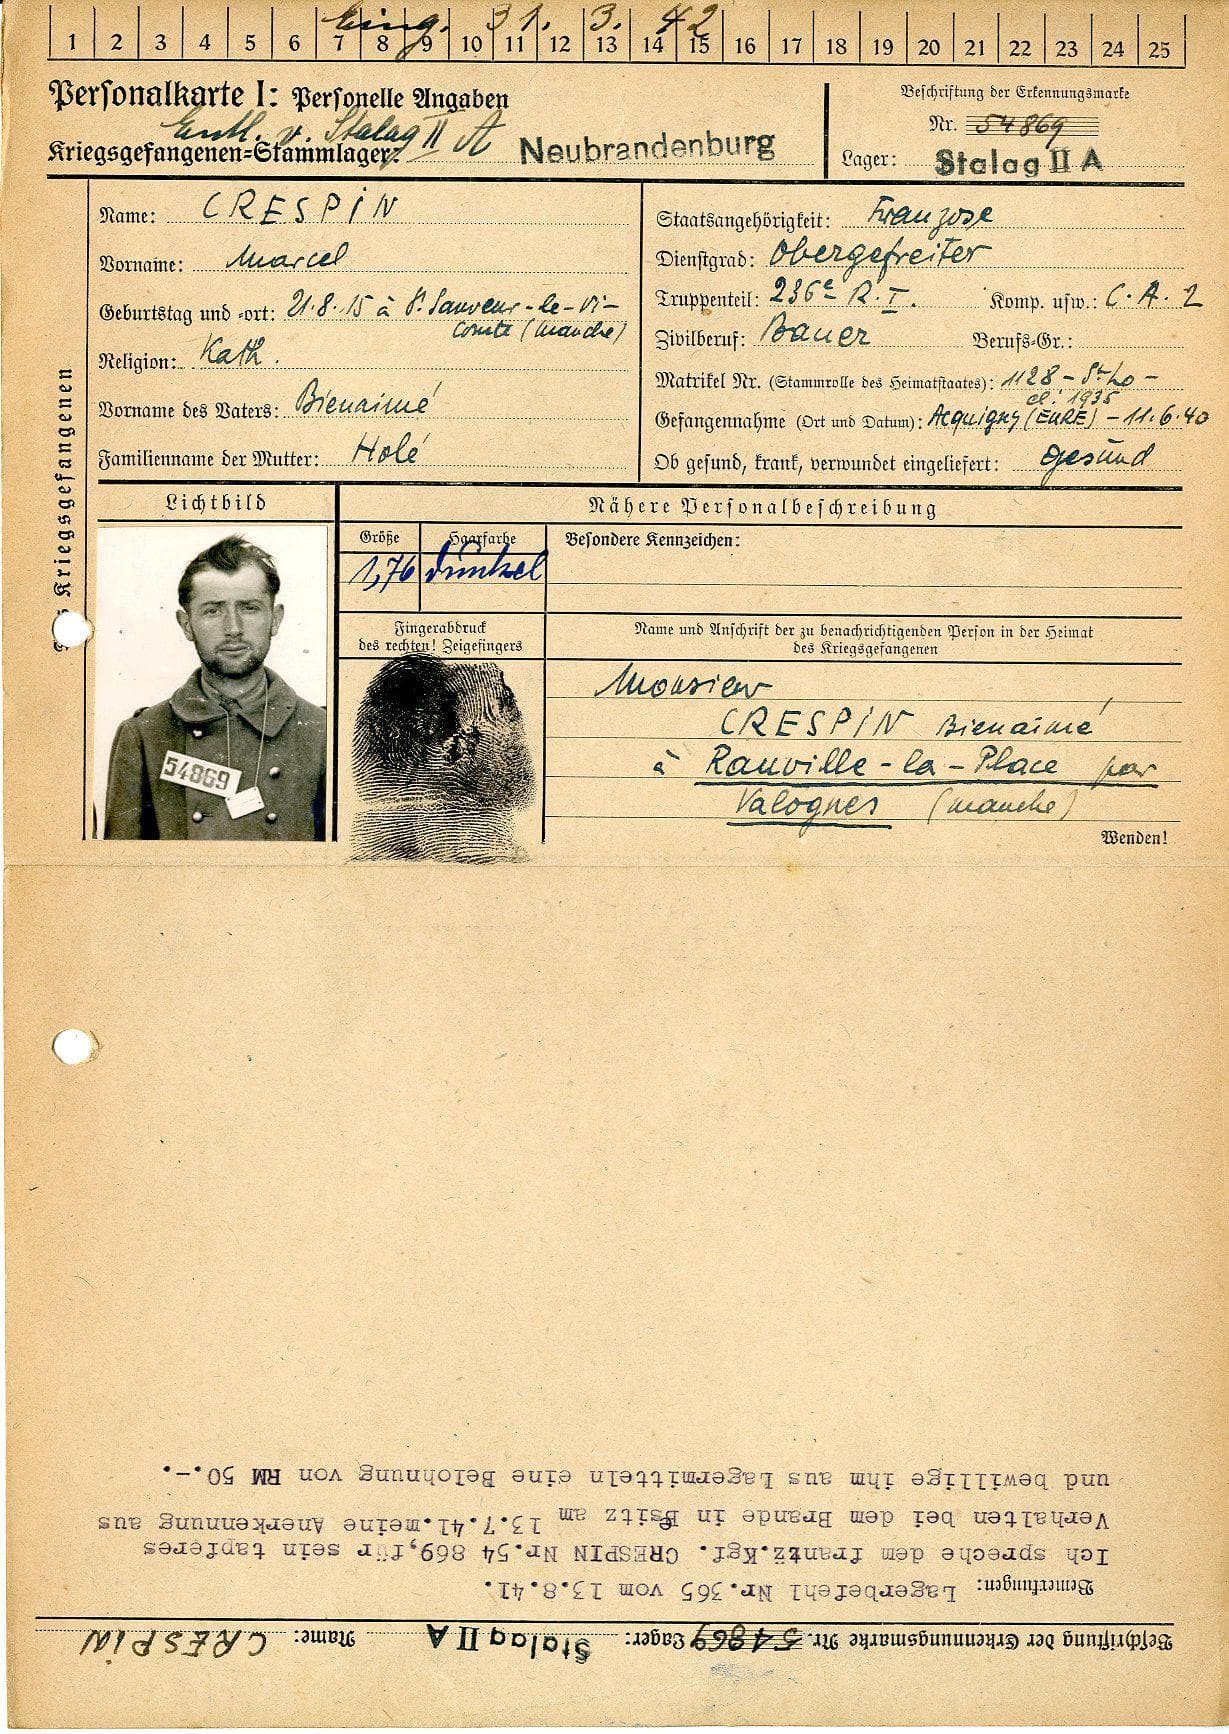 Eing. 31. 3. 42
1 2 3 4 5 6 7 8 9 10 11 12 13 14 15 16 17 18 19 20 21 22 23 24 25
Personalkarte I: Personelle Angaben
Entl. v. Stalag II A
Kriegsgefangenen-Stammlager: Neubrandenburg
Beschriftung der Erkennungsmarke
Nr. 54869
Lager: Stalag II A
Kriegsgefangenen
Name: CRESPIN
Vorname: Marcel
Geburtstag und -ort: 21.8.15 à St Sauveur-le-Vi-
comte (Manche)
Religion: Kath.
Vorname des Vaters: Bienaimé
Familienname der Mutter: Holé
Staatsangehörigkeit: Franzose
Dienstgrad: Obergefreiter
Truppenteil: 236e R.I. Komp. usw.: C.A.2
Zivilberuf: Bauer Berufs-Gr.:
Matrikel Nr. (Stammrolle des Heimatstaates): 1128 - St Lo -
cl. 1935
Gefangennahme (Ort und Datum): Acquigny (EURE) - 11.6.40
Ob gesund, krank, verwundet eingeliefert: gesund
Lichtbild
54869
Nähere Personalbeschreibung
Größe Haarfarbe Besondere Kennzeichen:
1,76 dunkel
Fingerabdruck
des rechten! Zeigefingers
Name und Anschrift der zu benachrichtigenden Person in der Heimat
des Kriegsgefangenen
Monsieur
CRESPIN Bienaimé
à Rauville-la-Place par
Valognes (Manche)
Wenden!
Beschriftung der Erkennungsmarke Nr. 54869 Lager: Stalag II A Name: CRESPIN
Bemerkungen: Lagerbefehl Nr.365 vom 13.8.41.
Ich spreche dem frantz.Kgf. CRESPIN Nr.54 869,für sein tapferes
Verhalten bei dem Brande in Psitz am 13.7.41.meine Anerkennung aus
und bewillige ihm aus Lagermitteln eine Belohnung von RM 50.-.